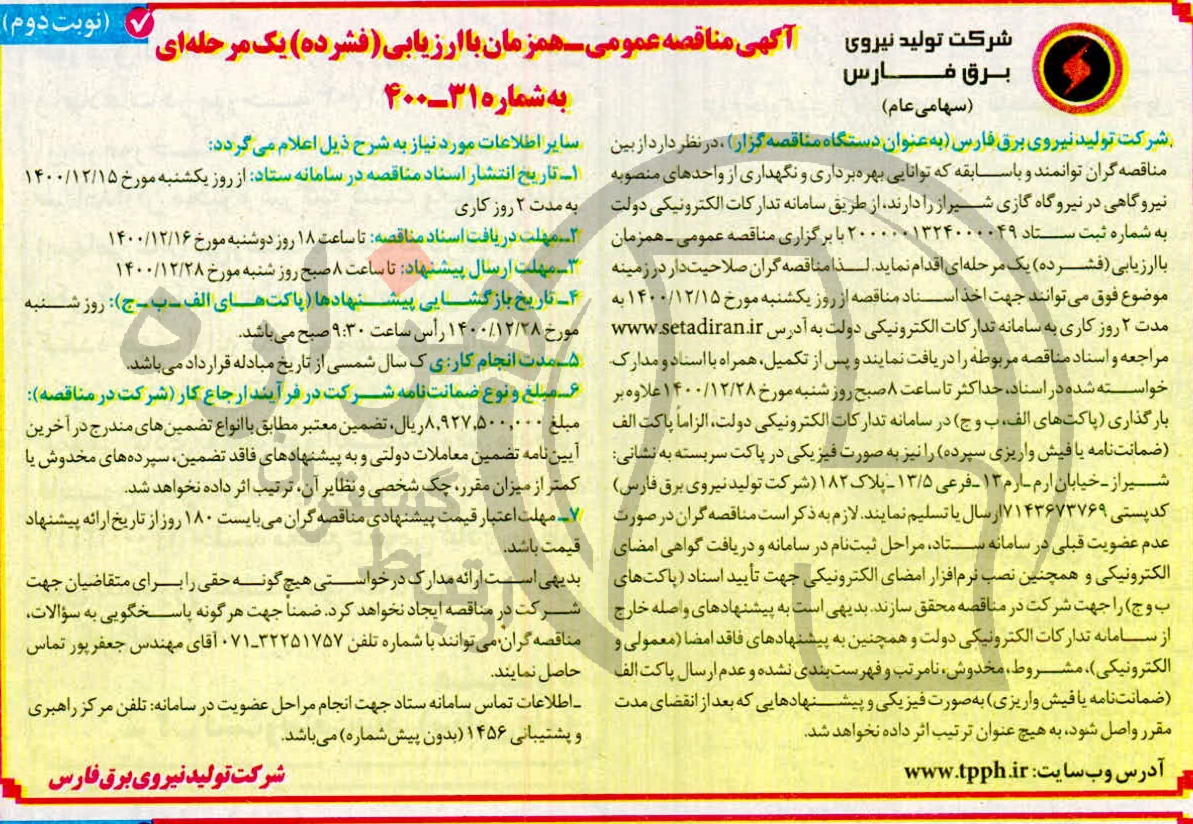 (نوبت دوم)
آگهی مناقصه عمومی ـ همزمان با ارزیابی (فشرده) یک مرحله‌ای
به شماره ۳۱ـ۴۰۰
شرکت تولید نیروی
برق فارس
(سهامی عام)
شرکت تولید نیروی برق فارس (به عنوان دستگاه مناقصه گزار)، در نظر دارد از بین
مناقصه گران توانمند و باسابقه که توانایی بهره برداری و نگهداری از واحدهای منصوبه
نیروگاهی در نیروگاه گازی شیراز را دارند، از طریق سامانه تدارکات الکترونیکی دولت
به شماره ثبت ستاد ۲۰۰۰۰۰۱۳۲۴۰۰۰۰۴۹ با برگزاری مناقصه عمومی ـ همزمان
با ارزیابی (فشرده) یک مرحله‌ای اقدام نماید. لذا مناقصه گران صلاحیت‌دار در زمینه
موضوع فوق می‌توانند جهت اخذ اسناد مناقصه از روز یکشنبه مورخ ۱۴۰۰/۱۲/۱۵ به
مدت ۲ روز کاری به سامانه تدارکات الکترونیکی دولت به آدرس www.setadiran.ir
مراجعه و اسناد مناقصه مربوطه را دریافت نمایند و پس از تکمیل، همراه با اسناد و مدارک
خواسته شده در اسناد، حداکثر تا ساعت ۸ صبح روز شنبه مورخ ۱۴۰۰/۱۲/۲۸ علاوه بر
بارگذاری (پاکت‌های الف، ب و ج) در سامانه تدارکات الکترونیکی دولت، الزاماً پاکت الف
(ضمانت‌نامه یا فیش واریزی سپرده) را نیز به صورت فیزیکی در پاکت سربسته به نشانی:
شیراز ـ خیابان ارم ـ ارم ۱۲ ـ فرعی ۱۳/۵ ـ پلاک ۱۸۲ (شرکت تولید نیروی برق فارس)
کد پستی ۷۱۴۳۶۷۳۷۶۹ ارسال یا تسلیم نمایند. لازم به ذکر است مناقصه گران در صورت
عدم عضویت قبلی در سامانه ستاد، مراحل ثبت‌نام در سامانه و دریافت گواهی امضای
الکترونیکی و همچنین نصب نرم‌افزار امضای الکترونیکی جهت تأیید اسناد (پاکت‌های
ب و ج) را جهت شرکت در مناقصه محقق سازند. بدیهی است به پیشنهادهای واصله خارج
از سامانه تدارکات الکترونیکی دولت و همچنین به پیشنهادهای فاقد امضا (معمولی و
الکترونیکی)، مشروط، مخدوش، نامرتب و فهرست‌بندی نشده و عدم ارسال پاکت الف
(ضمانت‌نامه یا فیش واریزی) به‌صورت فیزیکی و پیشنهادهایی که بعد از انقضای مدت
مقرر واصل شود، به هیچ عنوان ترتیب اثر داده نخواهد شد.
آدرس وب سایت: www.tpph.ir
سایر اطلاعات مورد نیاز به شرح ذیل اعلام می‌گردد:
۱ـ تاریخ انتشار اسناد مناقصه در سامانه ستاد: از روز یکشنبه مورخ ۱۴۰۰/۱۲/۱۵
به مدت ۲ روز کاری
۲ـ مهلت دریافت اسناد مناقصه: تا ساعت ۱۸ روز دوشنبه مورخ ۱۴۰۰/۱۲/۱۶
۳ـ مهلت ارسال پیشنهاد: تا ساعت ۸ صبح روز شنبه مورخ ۱۴۰۰/۱۲/۲۸
۴ـ تاریخ بازگشایی پیشنهادها (پاکت‌های الف ـ ب ـ ج): روز شنبه
مورخ ۱۴۰۰/۱۲/۲۸ رأس ساعت ۹:۳۰ صبح می‌باشد.
۵ـ مدت انجام کار: ی ک سال شمسی از تاریخ مبادله قرارداد می‌باشد.
۶ـ مبلغ و نوع ضمانت‌نامه شرکت در فرآیند ارجاع کار (شرکت در مناقصه):
مبلغ ۸,۹۲۷,۵۰۰,۰۰۰ ریال، تضمین معتبر مطابق با انواع تضمین‌های مندرج در آخرین
آیین‌نامه تضمین معاملات دولتی و به پیشنهادهای فاقد تضمین، سپرده‌های مخدوش یا
کمتر از میزان مقرر، چک شخصی و نظایر آن، ترتیب اثر داده نخواهد شد.
۷ـ مهلت اعتبار قیمت پیشنهادی مناقصه گران می‌بایست ۱۸۰ روز از تاریخ ارائه پیشنهاد
قیمت باشد.
بدیهی است ارائه مدارک درخواستی هیچ گونه حقی را برای متقاضیان جهت
شرکت در مناقصه ایجاد نخواهد کرد. ضمناً جهت هر گونه پاسخگویی به سؤالات،
مناقصه گران می‌توانند با شماره تلفن ۳۲۲۵۱۷۵۷ـ۰۷۱ آقای مهندس جعفرپور تماس
حاصل نمایند.
ـ اطلاعات تماس سامانه ستاد جهت انجام مراحل عضویت در سامانه: تلفن مرکز راهبری
و پشتیبانی ۱۴۵۶ (بدون پیش شماره) می‌باشد.
شرکت تولید نیروی برق فارس